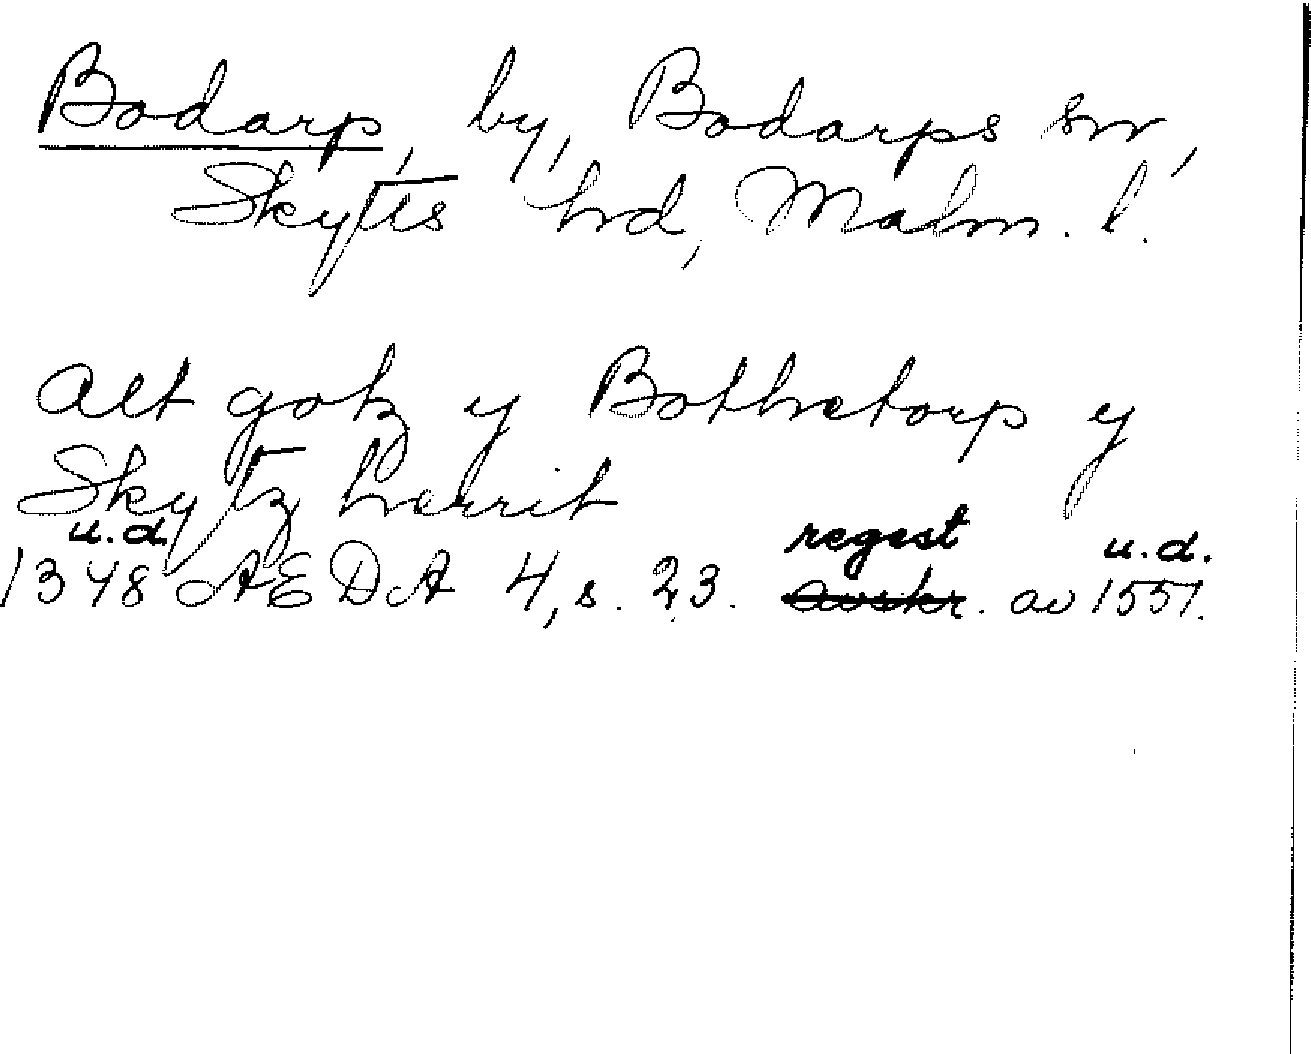 Bodarp, by, Bodarps sn,
Skytts hd, Malm. l.
Alt gotz y Bothetorp y
Skytz herrit
u.d. regest u.d.
1348 AEDA 4, s. 23. avskr. av 1551.